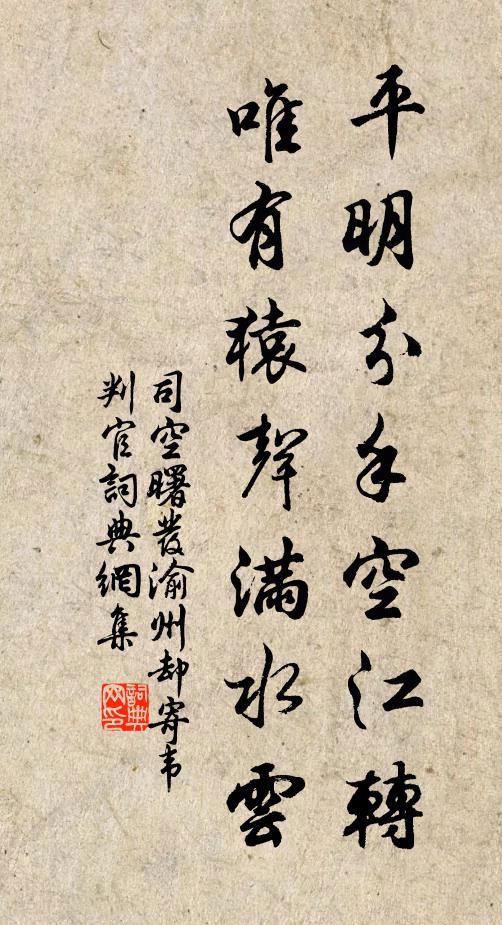 平明分手空江轉
唯有猿聲滿水雲
司空曙發渝州却寄韦
判官詞典網集
詞典
网印